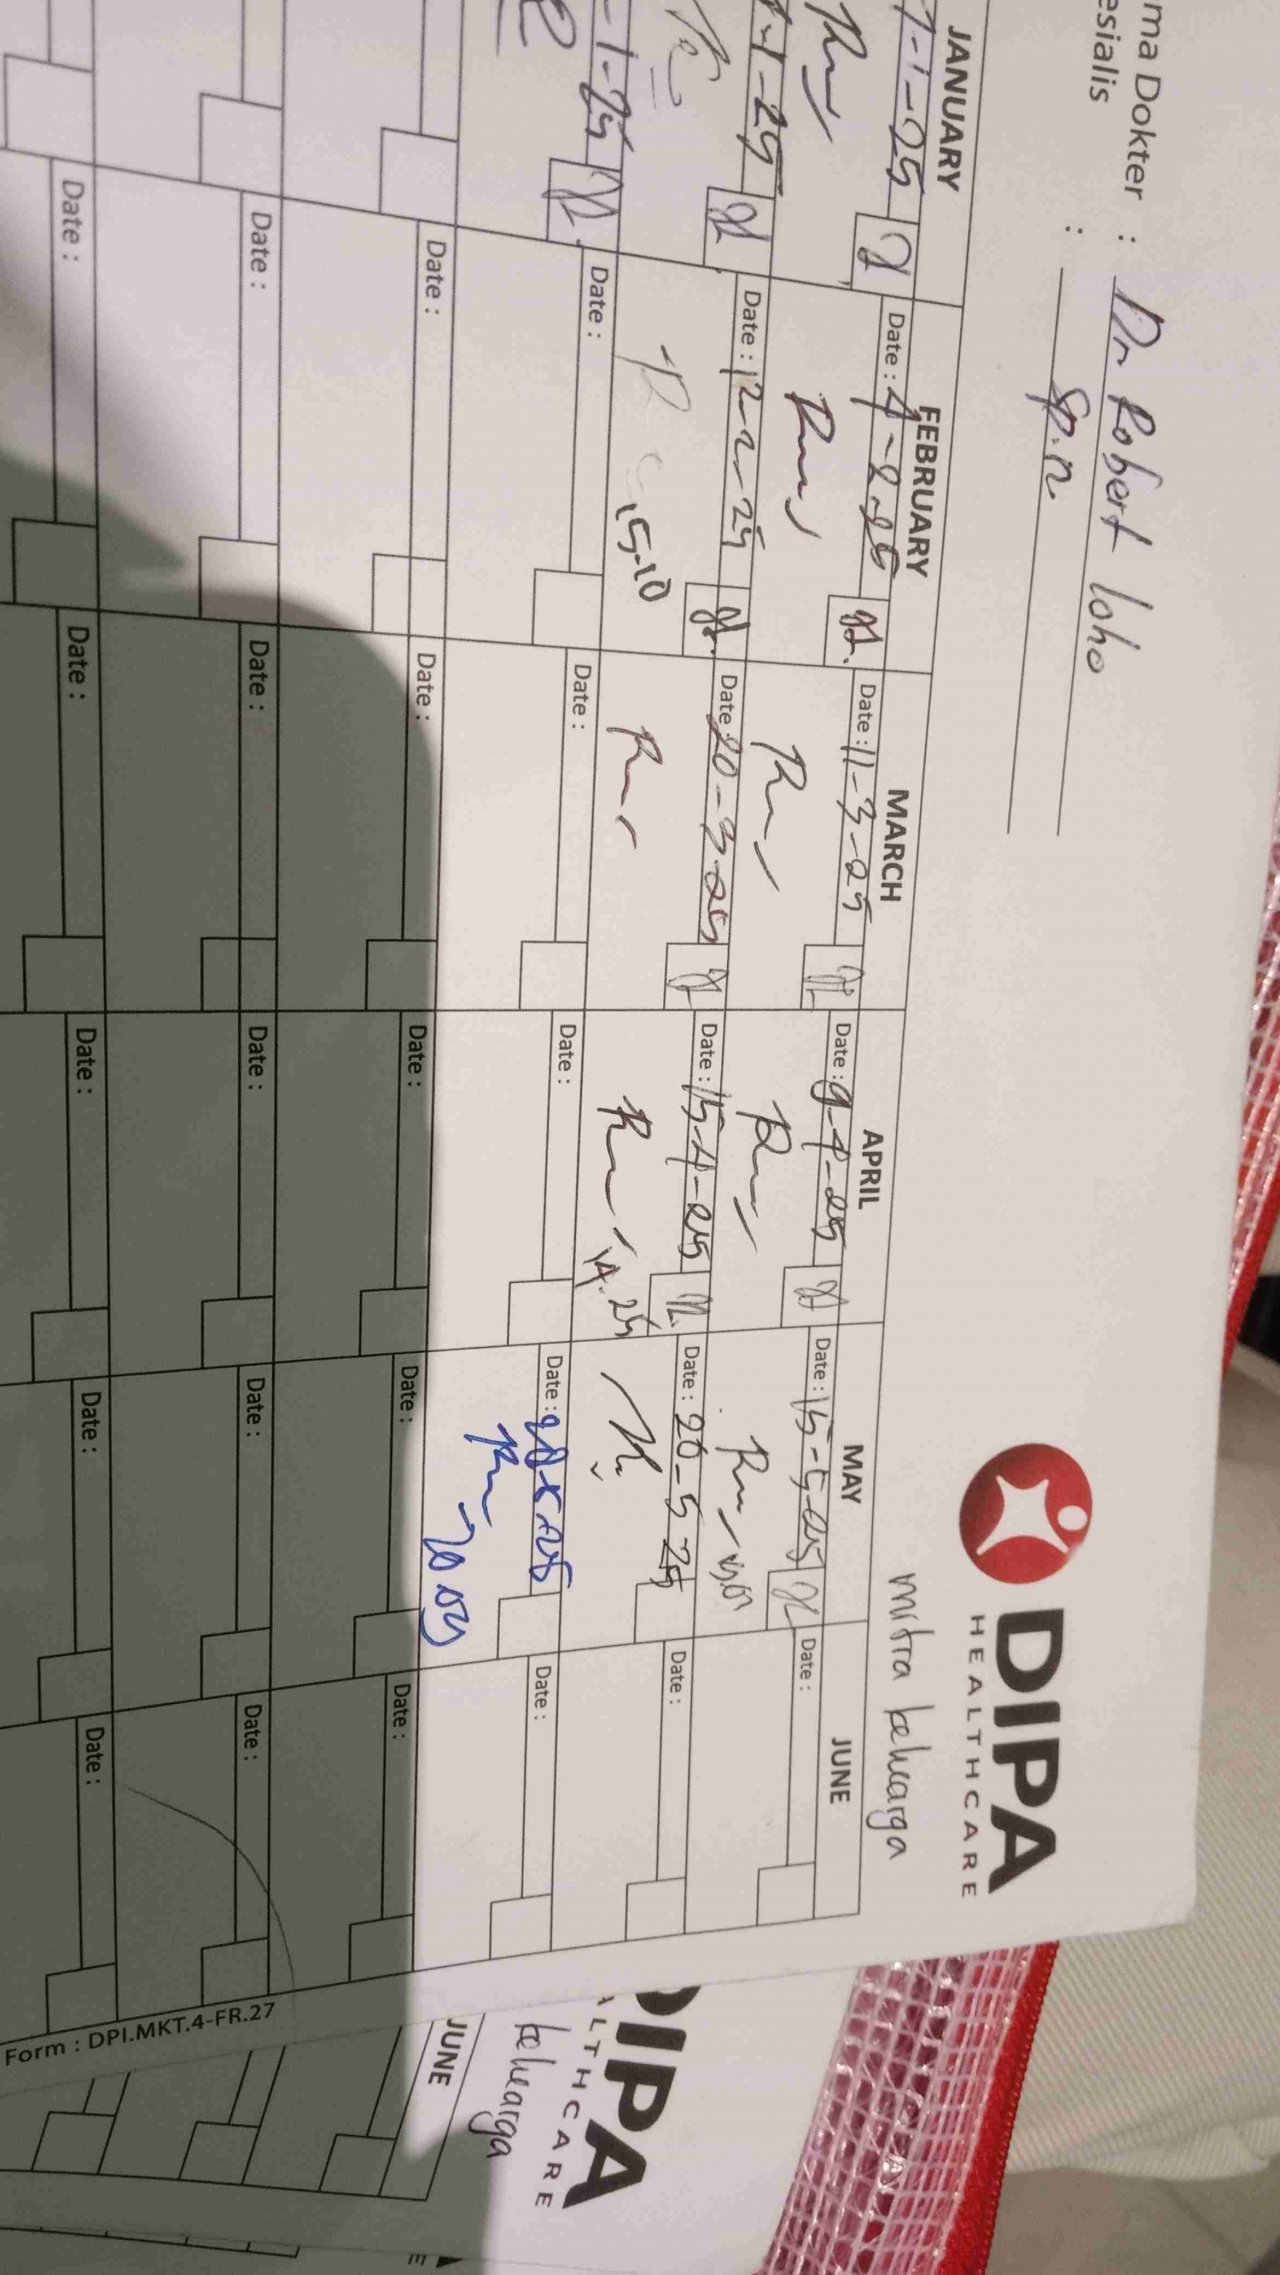 ma Dokter : Dr Robert Loho
esialis : Sp.n
DIPA
HEALTHCARE
mitra keluarga
JANUARY FEBRUARY MARCH APRIL MAY JUNE
7-1-25 Date : 4-2-25 Date : 11-3-25 Date : 9-4-25 Date : 15-5-25 Date :
-1-25 Date : 12-2-25 Date 20-3-25 Date : 15-4-25 Date : 20-5-25 Date :
15-10 14.25
-1-25 Date : Date : Date : Date : 28-5-25 Date :
20 09
Date : Date : Date : Date : Date :
Date : Date : Date : Date : Date :
Date : Date : Date : Date : Date :
Form : DPI.MKT.4-FR.27
DIPA
ALTHCARE
keluarga
JUNE